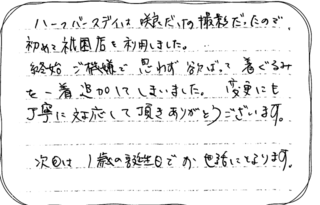 ハーフバースデイは、娘だけの撮影だったので、
初めて祇園店を利用しました。
終始ご機嫌で思わず欲ばって着ぐるみ
を一着追加してしまいました。変更にも
丁寧に対応して頂きありがとうございます。
次回は1歳の誕生日でお世話になります。